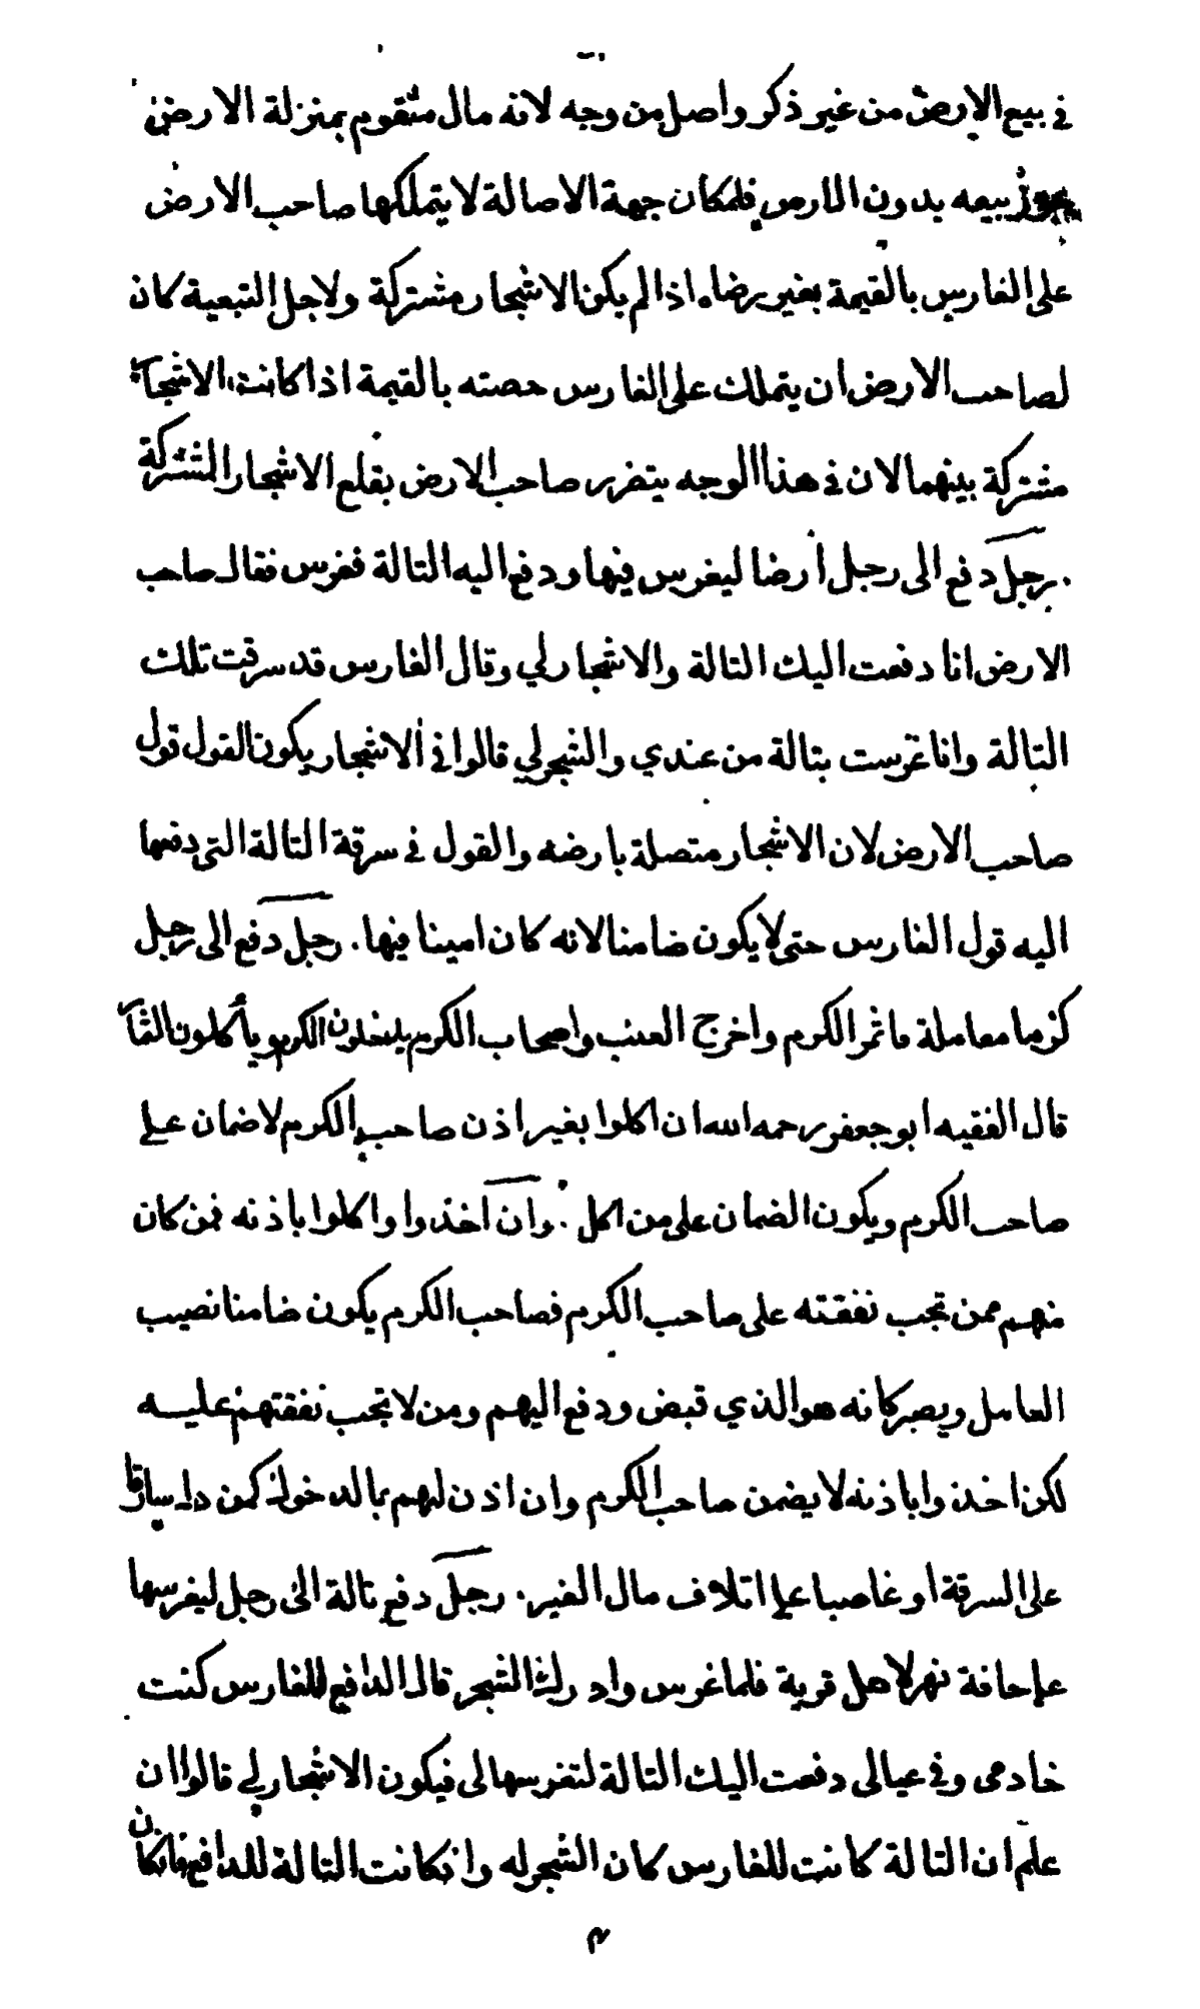 في بيع الارض من غير ذكر واصل من وجه لانه مال متقوم بمنزلة الارض
يجوز بيعه بدون الارض فلمكان جهة الاصالة لا يتملكها صاحب الارض
على الغارس بالقيمة بغير رضاه اذا لم يكن الاشجار مشتركة ولاجل التبعية كان
لصاحب الارض ان يتملك على الغارس حصته بالقيمة اذا كانت الاشجار
مشتركة بينهما لان في هذا الوجه يتضرر صاحب الارض بقلع الاشجار المشتركة
. رجل دفع الى رجل أرضا ليغرس فيها ودفع اليه التالة فغرس فقال صاحب
الارض انا دفعت اليك التالة والاشجار لي وقال الغارس قد سرقت تلك
التالة وانا غرست بتالة من عندي والشجر لي قالوا في الاشجار يكون القول قول
صاحب الارض لان الاشجار متصلة بارضه والقول في سرقة التالة التي دفعها
اليه قول الغارس حتى لا يكون ضامنا لانه كان امينا فيها . رجل دفع الى رجل
كرما معاملة فاثمر الكرم واخرج العنب واصحاب الكرم يدخلون الكرم ويأكلون الثمار
قال الفقيه ابو جعفر رحمه الله ان اكلوا بغير اذن صاحب الكرم لا ضمان على
صاحب الكرم ويكون الضمان على من اكل . وان اخذوا واكلوا باذنه فمن كان
منهم ممن تجب نفقته على صاحب الكرم فصاحب الكرم يكون ضامنا نصيب
العامل ويصير كانه هو الذي قبض ودفع اليهم ومن لا تجب نفقتهم عليه
لكن اخذوا باذنه لا يضمن صاحب الكرم وان اذن لهم بالدخول كمن دل سارقا
على السرقة او غاصبا على اتلاف مال الغير . رجل دفع تالة الى رجل ليغرسها
على حافة نهر لاهل قرية فلما غرس وادرك الشجر قال الدافع للغارس كنت
خادمى وفي عيالى دفعت اليك التالة لتغرسها لى فيكون الاشجار لي قالوا ان
علم ان التالة كانت للغارس كان الشجر له وان كانت التالة للدافع فان كان